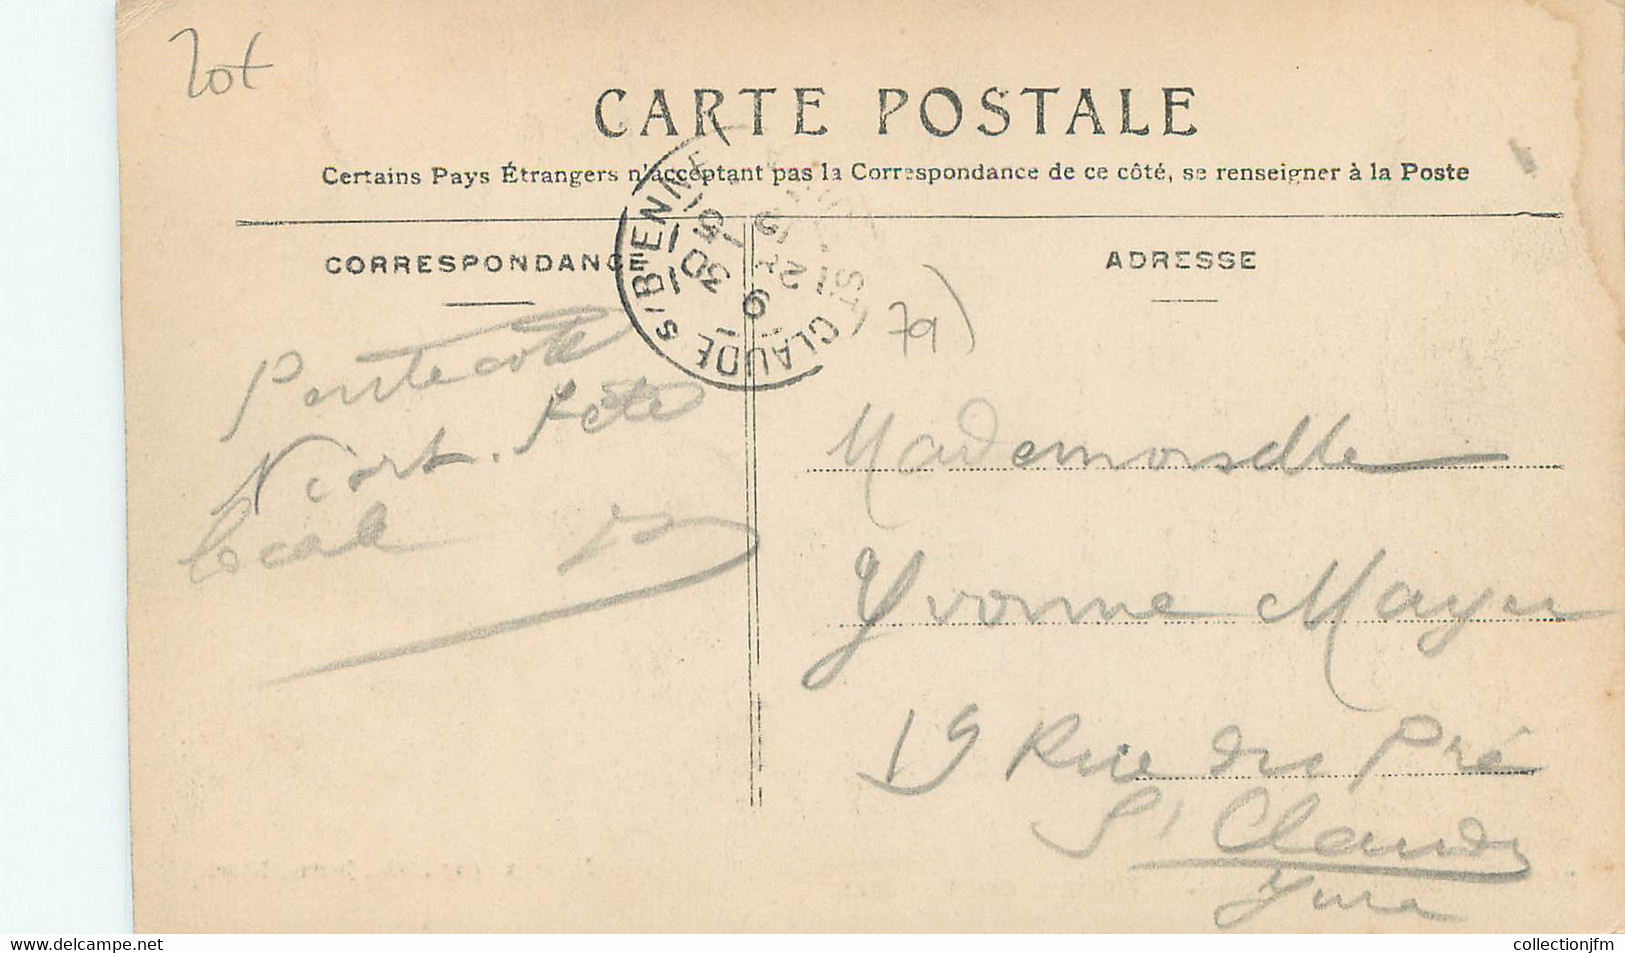 20t
CARTE POSTALE
Certains Pays Étrangers n'acceptant pas la Correspondance de ce côté, se renseigner à la Poste
CORRESPONDANCE
ADRESSE
ST CLAUDE S/BIENNE
15 30
9
79)
Pentecote
Niort. Fete
locale
Mademoiselle
Yvonne Mayer
19 Rue du Pré
St Claude
Jura
www.delcampe.net
collectionjfm